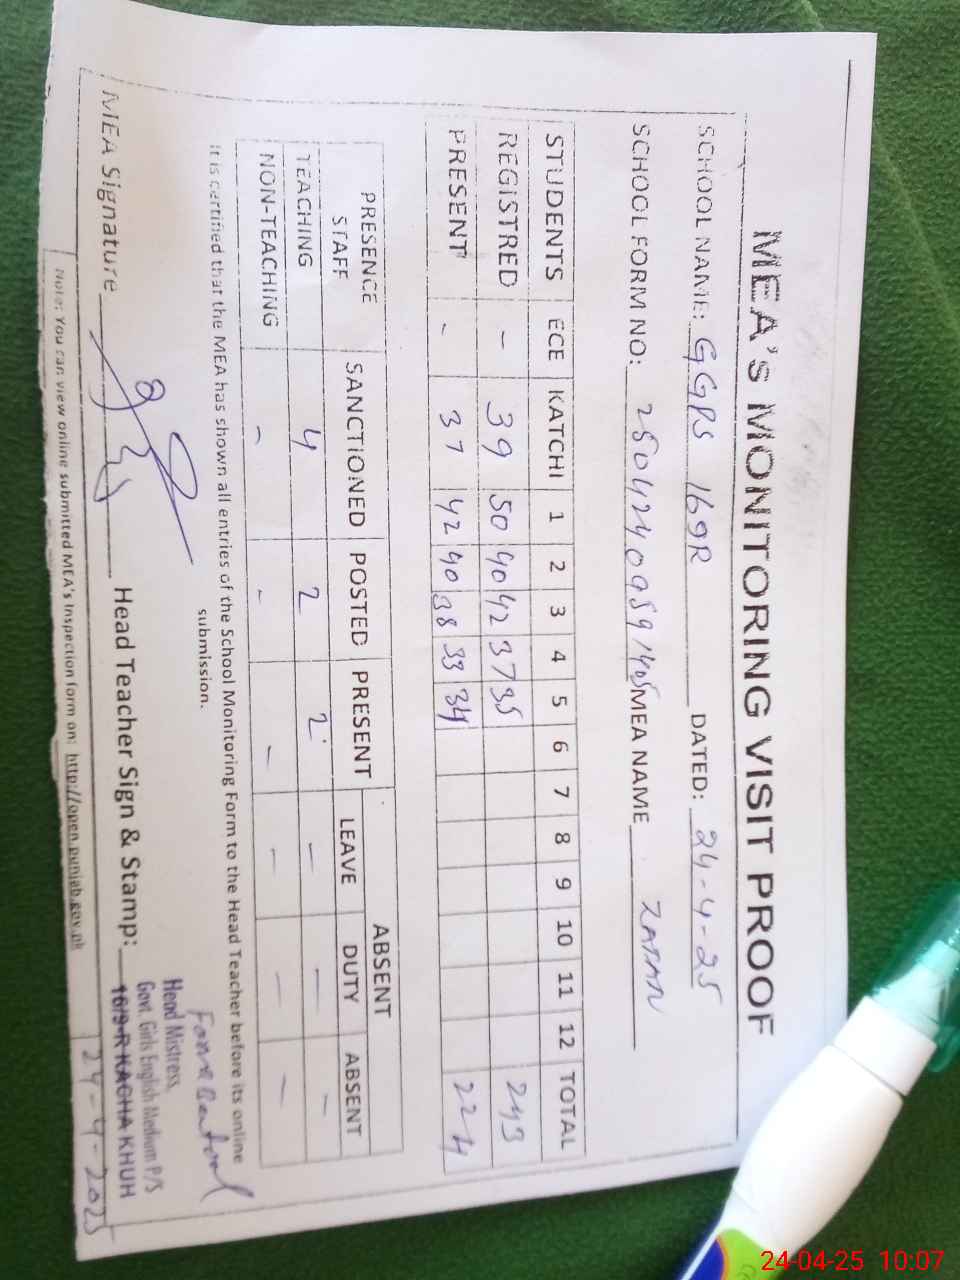 MEA's MONITORING VISIT PROOF
SCHOOL NAME: GGPS 169R DATED: 24-4-25
SCHOOL FORM NO: MEA NAME
STUDENTS ECE KATCHI 1 2 3 4 5 6 7 8 9 10 11 12 TOTAL
REGISTRED - 39 50 40 42 37 35 243
PRESENT - 37 42 40 38 33 34 224
PRESENCE STAFF SANCTIONED POSTED PRESENT ABSENT
LEAVE DUTY ABSENT
TEACHING 4 2 2 - - -
NON-TEACHING - - - - - -
It is certified that the MEA has shown all entries of the School Monitoring Form to the Head Teacher before its online
submission.
MEA Signature Head Teacher Sign & Stamp:
Head Mistress,
Govt. Girls English Medium P/S
16/9-R KACHA KHUH
24-4-2025
Note: You can view online submitted MEA's Inspection form on: http://open.punjab.gov.pk
24-04-25 10:07